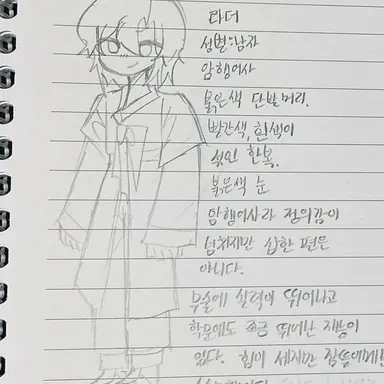 타더
성별:남자
암행어사
붉은색 단발머리.
빨간색, 흰색이
섞인 한복.
붉은색 눈
암행어사라 정의감이
넘치지만 심한 편은
아니다.
무술에 실력이 뛰어나고
학문에도 조금 뛰어난 지능이
있다. 힘이 세지만